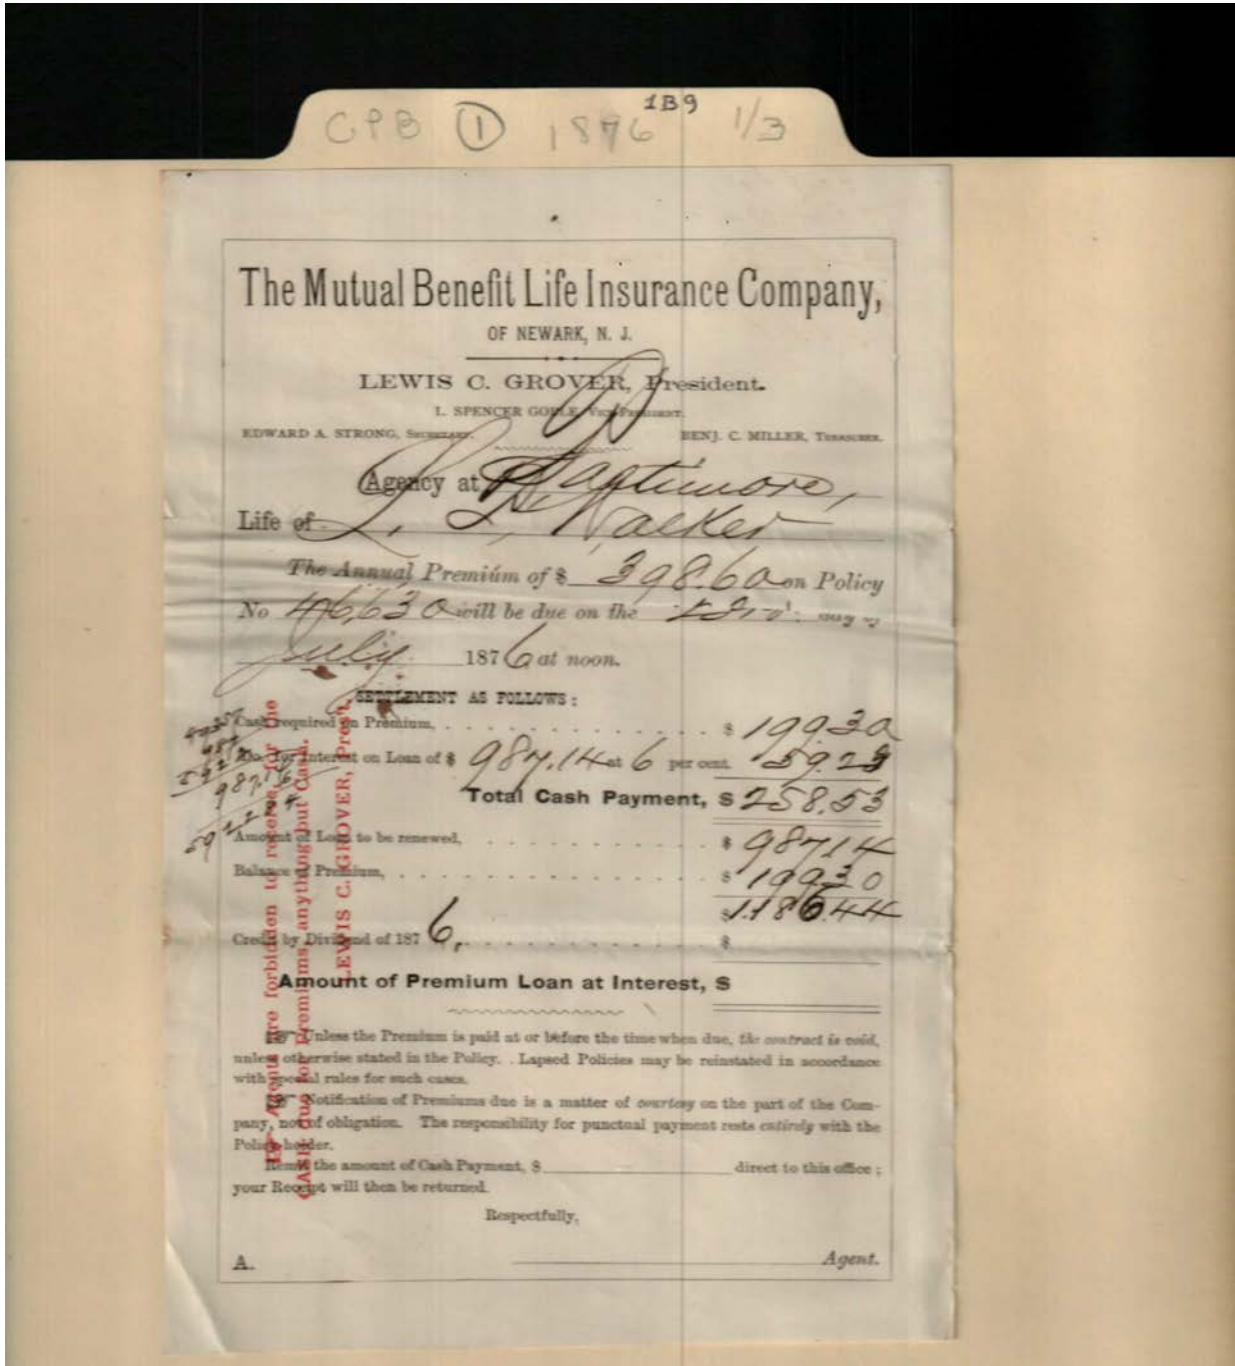 CPB ① 1876 1B9 1/3
The Mutual Benefit Life Insurance Company,
OF NEWARK, N. J.
LEWIS C. GROVER, President.
I. SPENCER GOBLE, VICE-PRESIDENT.
EDWARD A. STRONG, SECRETARY. BENJ. C. MILLER, TREASURER.
Agency at Baltimore,
Life of Walker
The Annual Premium of $ 398.60 on Policy
No 46,630 will be due on the day of
July 1876 at noon.
SETTLEMENT AS FOLLOWS:
Cash required on Premium, $ 199.30
for Interest on Loan of $ 987.14 at 6 per cent. 59.23
Total Cash Payment, $ 258.53
Amount of Loan to be renewed, $ 987.14
Balance of Premium, $ 199.30
$ 1.186.44
Credit by Dividend of 1876, $
Amount of Premium Loan at Interest, $
☞ Unless the Premium is paid at or before the time when due, the contract is void,
unless otherwise stated in the Policy. . Lapsed Policies may be reinstated in accordance
with special rules for such cases.
☞ Notification of Premiums due is a matter of courtesy on the part of the Com-
pany, not of obligation. The responsibility for punctual payment rests entirely with the
Policy-holder.
Remit the amount of Cash Payment, $ direct to this office;
your Receipt will then be returned.
Respectfully,
A. Agent.
☞ Agents are forbidden to receive, for the
CASH due for Premiums, anything but Cash.
LEWIS C. GROVER, Pres't.